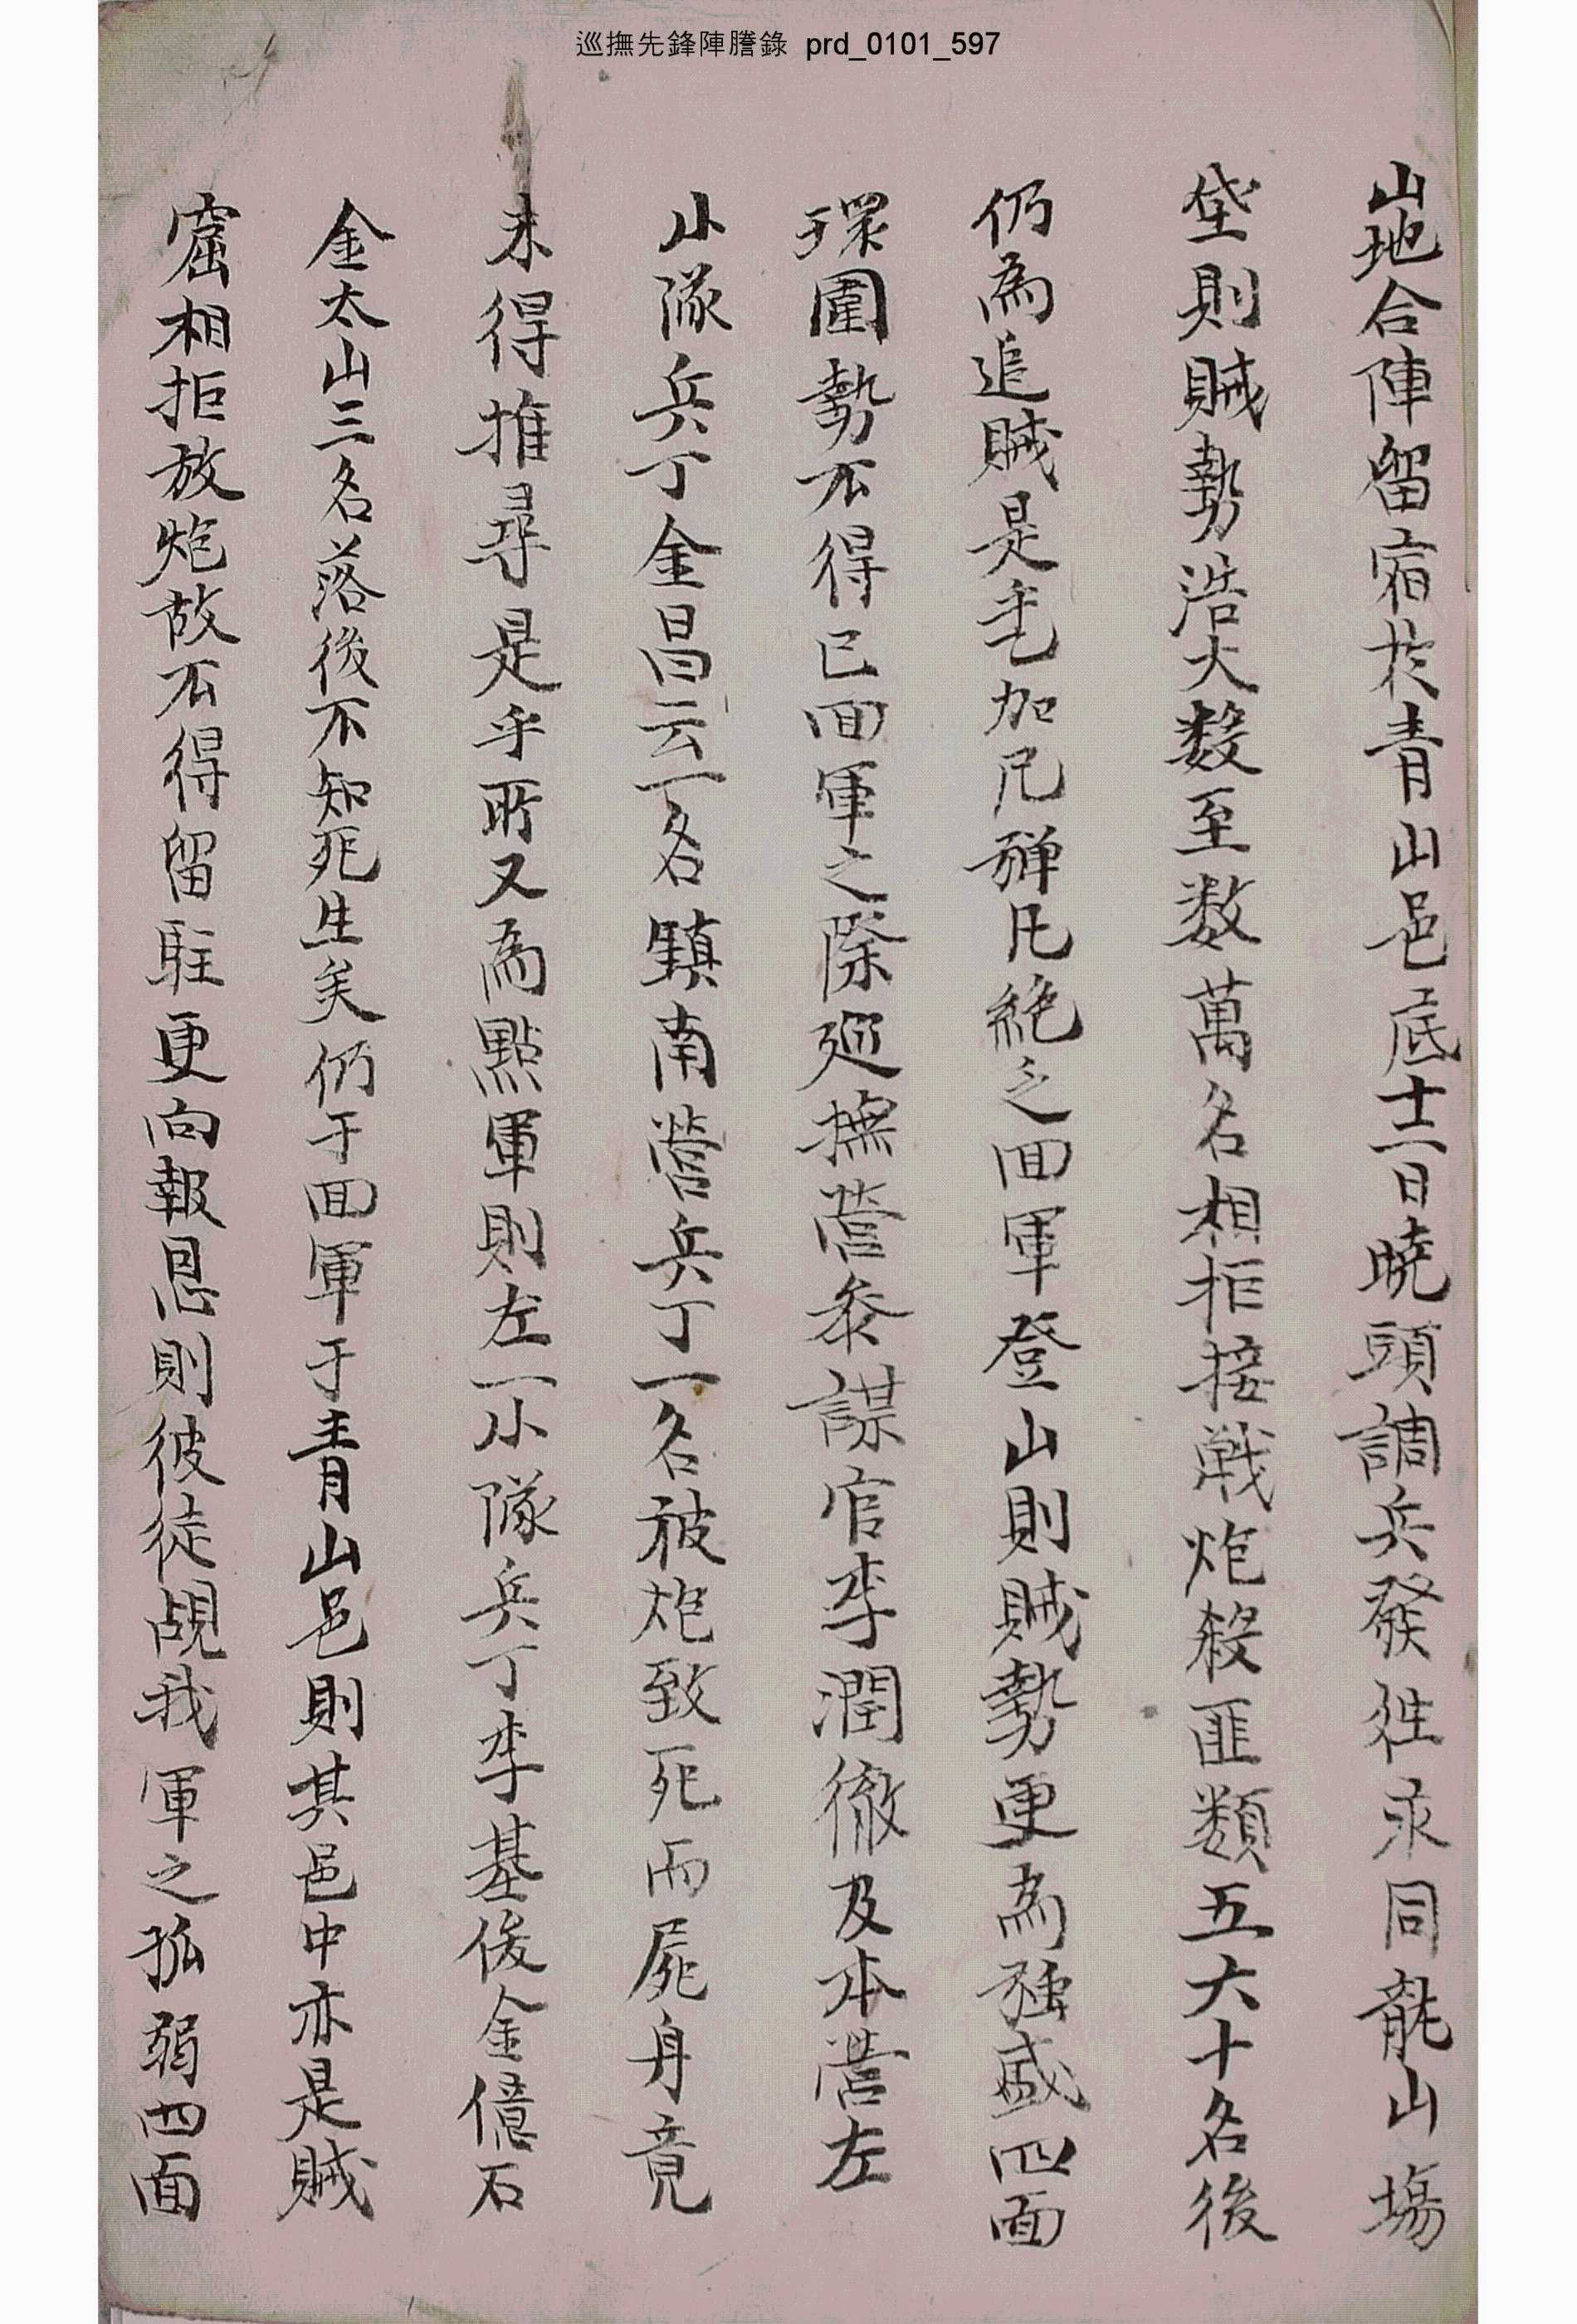 巡撫先鋒陣謄錄 prd_0101_597
山地合陣留宿於青山邑底十二日曉頭調兵發往永同龍山場
垈則賊勢浩大数至数萬名相拒接戰炮殺匪類五六十名後
仍為追賊是乎加尼殫尼絶之回軍登山則賊勢更為强盛四面
環圍勢不得已回軍之際廵撫營叅謀官李潤徹及本營左
小隊兵丁金昌云一名鎮南營兵丁一名被炮致死而屍身竟
未得推尋是乎所又為點軍則左一小隊兵丁李基俊金億石
金太山三名落後不知死生矣仍于回軍于青山邑則其邑中亦是賊
窟相拒放炮故不得留駐更向報恩則彼徒覘我軍之孤弱四面